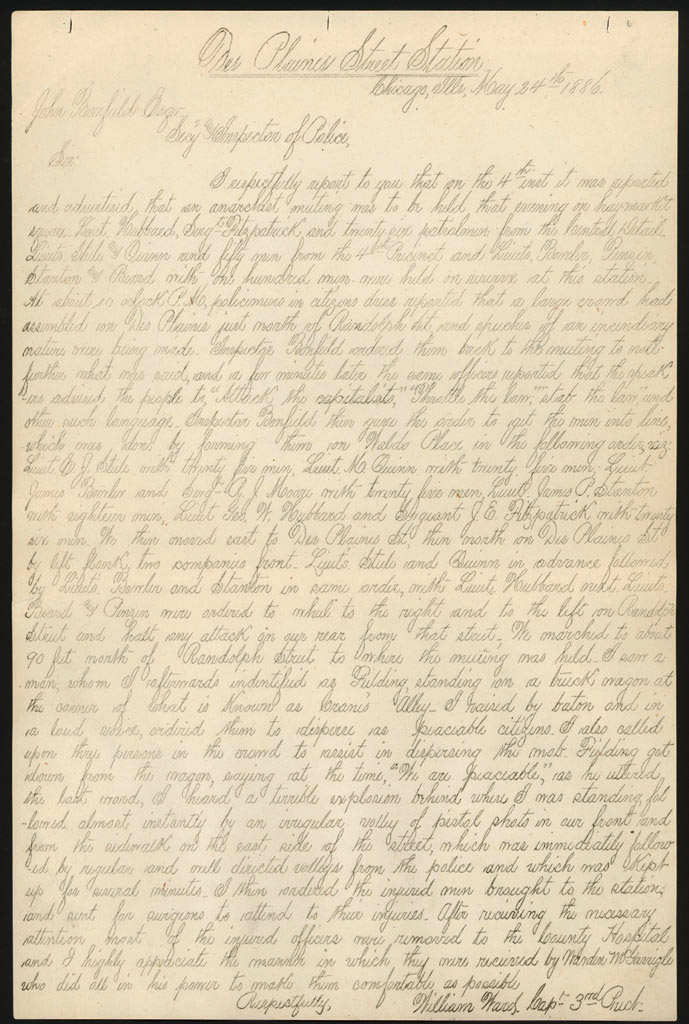 Des Plaines Street Station
Chicago, Ills, May 24th 1886.
John Bonfield Esqr.
Secy and Inspector of Police,
Sir:
I respectfully report to you that on the 4th inst it was reported
and advertised, that an anarchist meeting was to be held that evening on haymarket
square. Lieut. Hubbard, Sergt Fitzpatrick, and twenty six patrolmen from the Central Detail
Lieuts. Steele and Quinn and fifty men from the 4th Precinct and Lieuts, Bowler, Penzen,
Stanton and Beard with one hundred men were held on reserve at this station.
At about 10 oclock P.M., policemen in citizens dress reported that a large crowd had
assembled on Des Plaines just north of Randolph St and speeches of an incendiary
nature were being made. Inspector Bonfield ordered them back to the meeting to
further what was said, and a few minutes later the same officers reported that the speak
-ers advised the people to, "Attack the capitalists," "Throttle the law," "stab the law," and
other such language. Inspector Bonfield then gave the order to get the men into line,
which was done by forming them on Waldo Place in the following order, viz:
Lieut. E. J. Steele with twenty five men, Lieut. M. Quinn with twenty five men; Lieut.
James Bowler and Sergt A. J. Moore with twenty five men, Lieut. James P. Stanton
with eighteen men, Lieut Geo. W. Hubbard and Serguant J. E. Fitzpatrick with twenty
six men. We then moved east to Des Plaines St, then north on Des Plaines St
by left flank, two companies front. Lieuts. Steele and Quinn in advance followed
by Lieuts. Bowler and Stanton in same order, with Lieut. Hubbard next. Lieuts.
Beard and Penzen were ordered to wheel to the right and to the left on Randolph
Street and halt any attack on our rear from that street. We marched to about
90 feet north of Randolph Street to where the meeting was held. I saw a
man, whom I afterwards indentified as Fielding standing on a truck wagon at
the corner of what is known as Crane's Alley. I raised by baton and in
a loud voice, ordered them to disperse as peaciable citizens. I also called
upon three persons in the crowd to assist in dispersing the mob. Fielding got
down from the wagon, saying at the time, "We are peaciable," as he uttered
the last word, I heard a terrible explosion behind where I was standing, fol
-lowed almost instantly by an irregular volley of pistol shots in our front and
from the sidewalk on the east side of the street, which was immediately follow
-ed by regular and well directed volleys from the police and which was kept
up for several minutes. I then ordered the injured men brought to the station,
and sent for surgeons to attend to their injuries. After receiving the necessary
attention most of the injured officers were removed to the County Hospital
and I highly appreciate the manner in which they were received by Warden McGarrigle
who did all in his power to make them comfortable as possible
Respectfully,
William Ward Capt 3rd Prect.